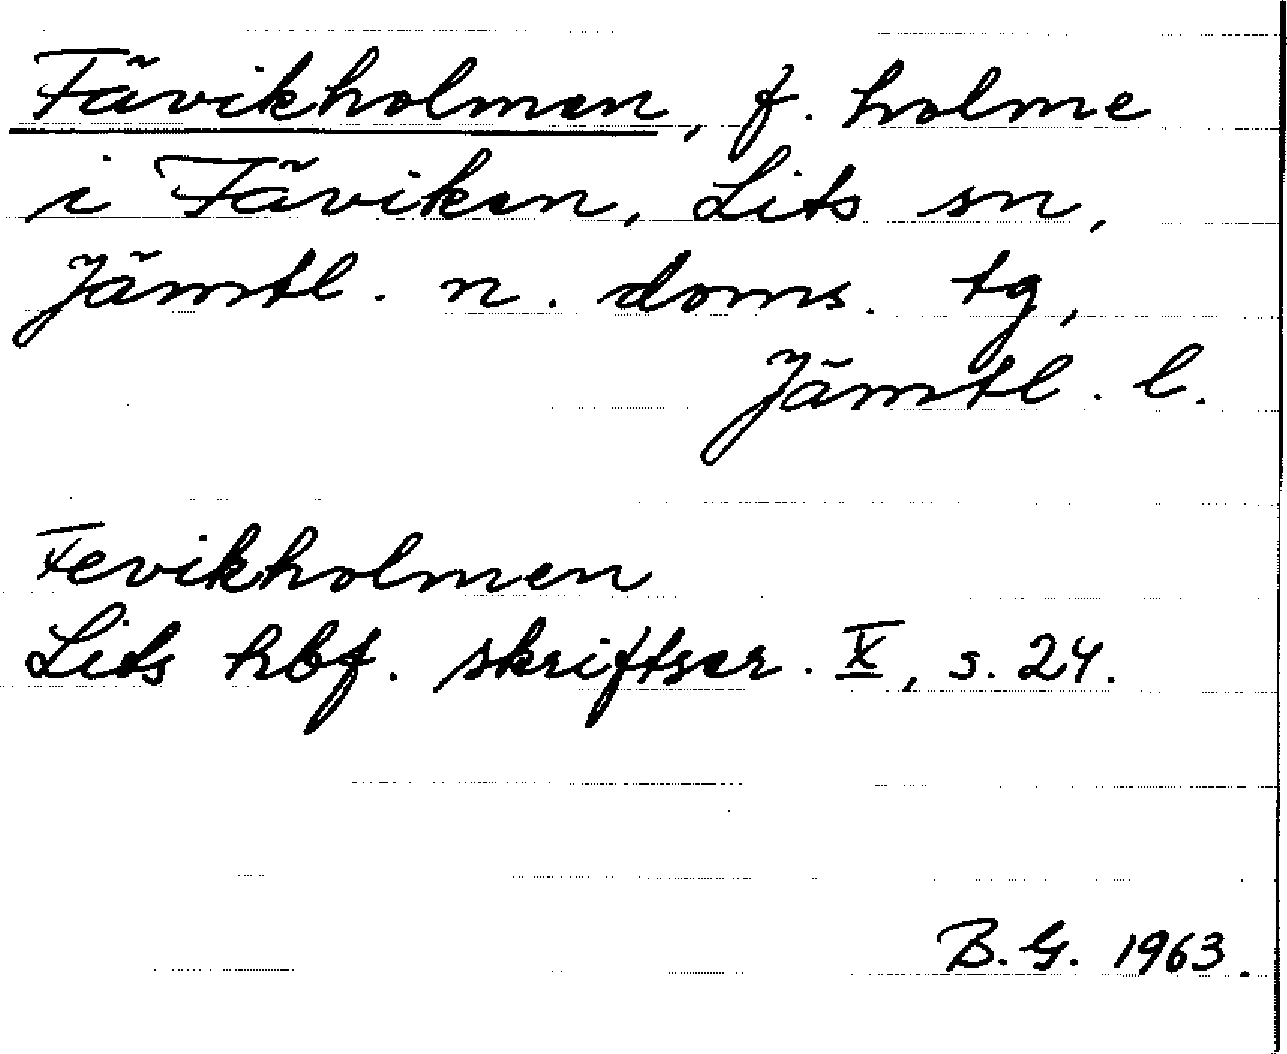 Fävikholmen, f. holme
i Fäviken, Lits sn,
Jämtl. n. doms. tg,
Jämtl. l.
Fevikholmen
Lits hbf. skriftser. X, s. 24.
B.G. 1963.